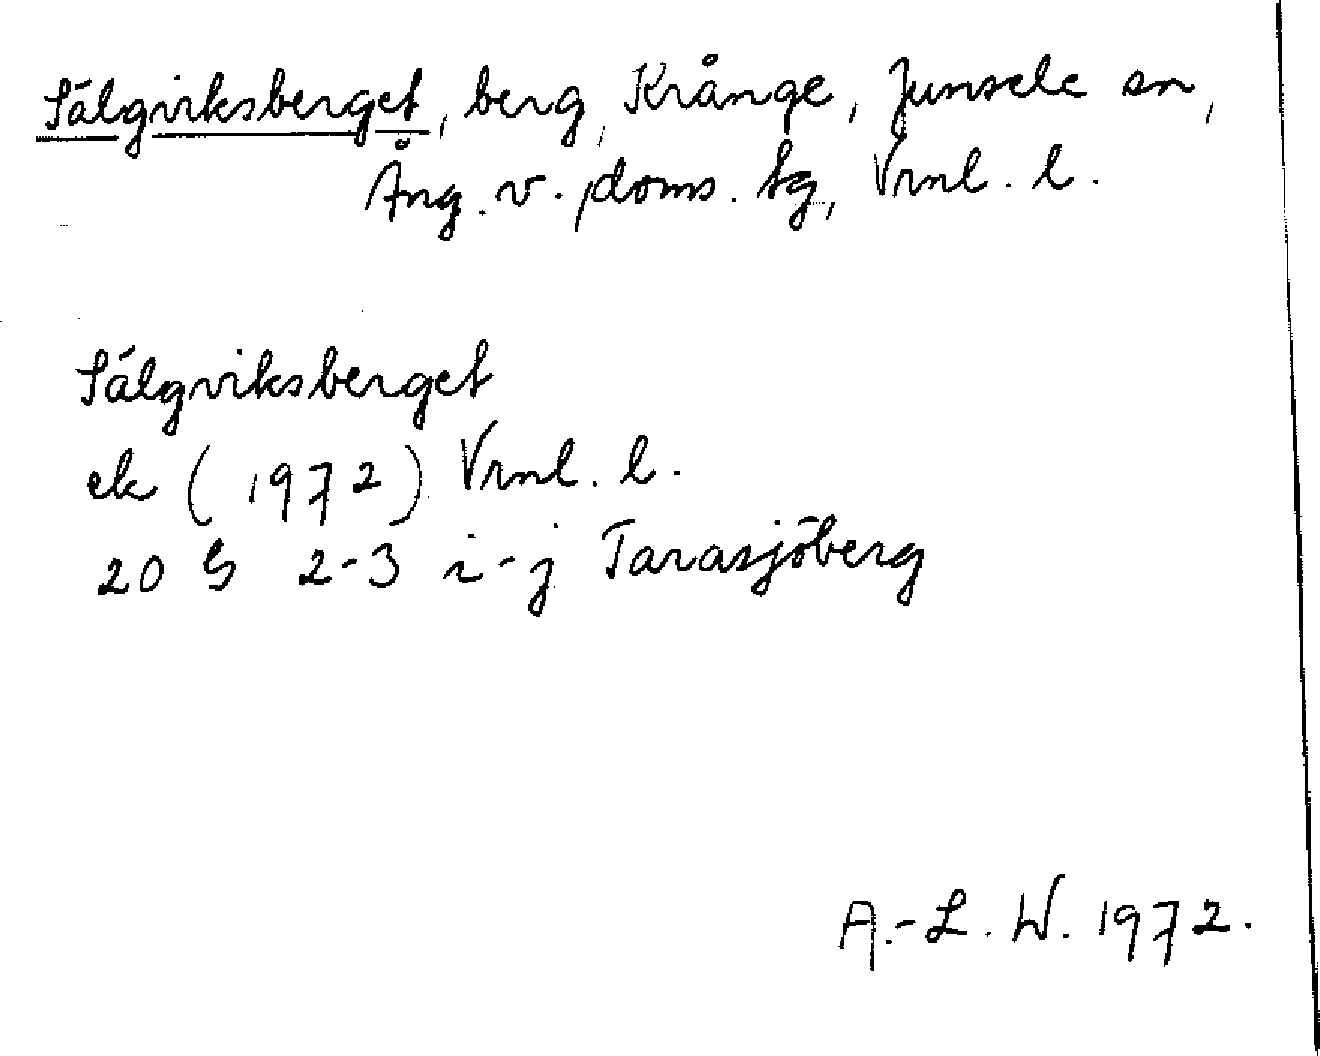 Sälgviksberget, berg, Krånge, Junsele sn,
Ång. v. doms. tg, Vrnl. l.
Sälgviksberget
ek (1972) Vrnl. l.
20 G 2-3 i-j Tarasjöberg
A.-L. W. 1972.